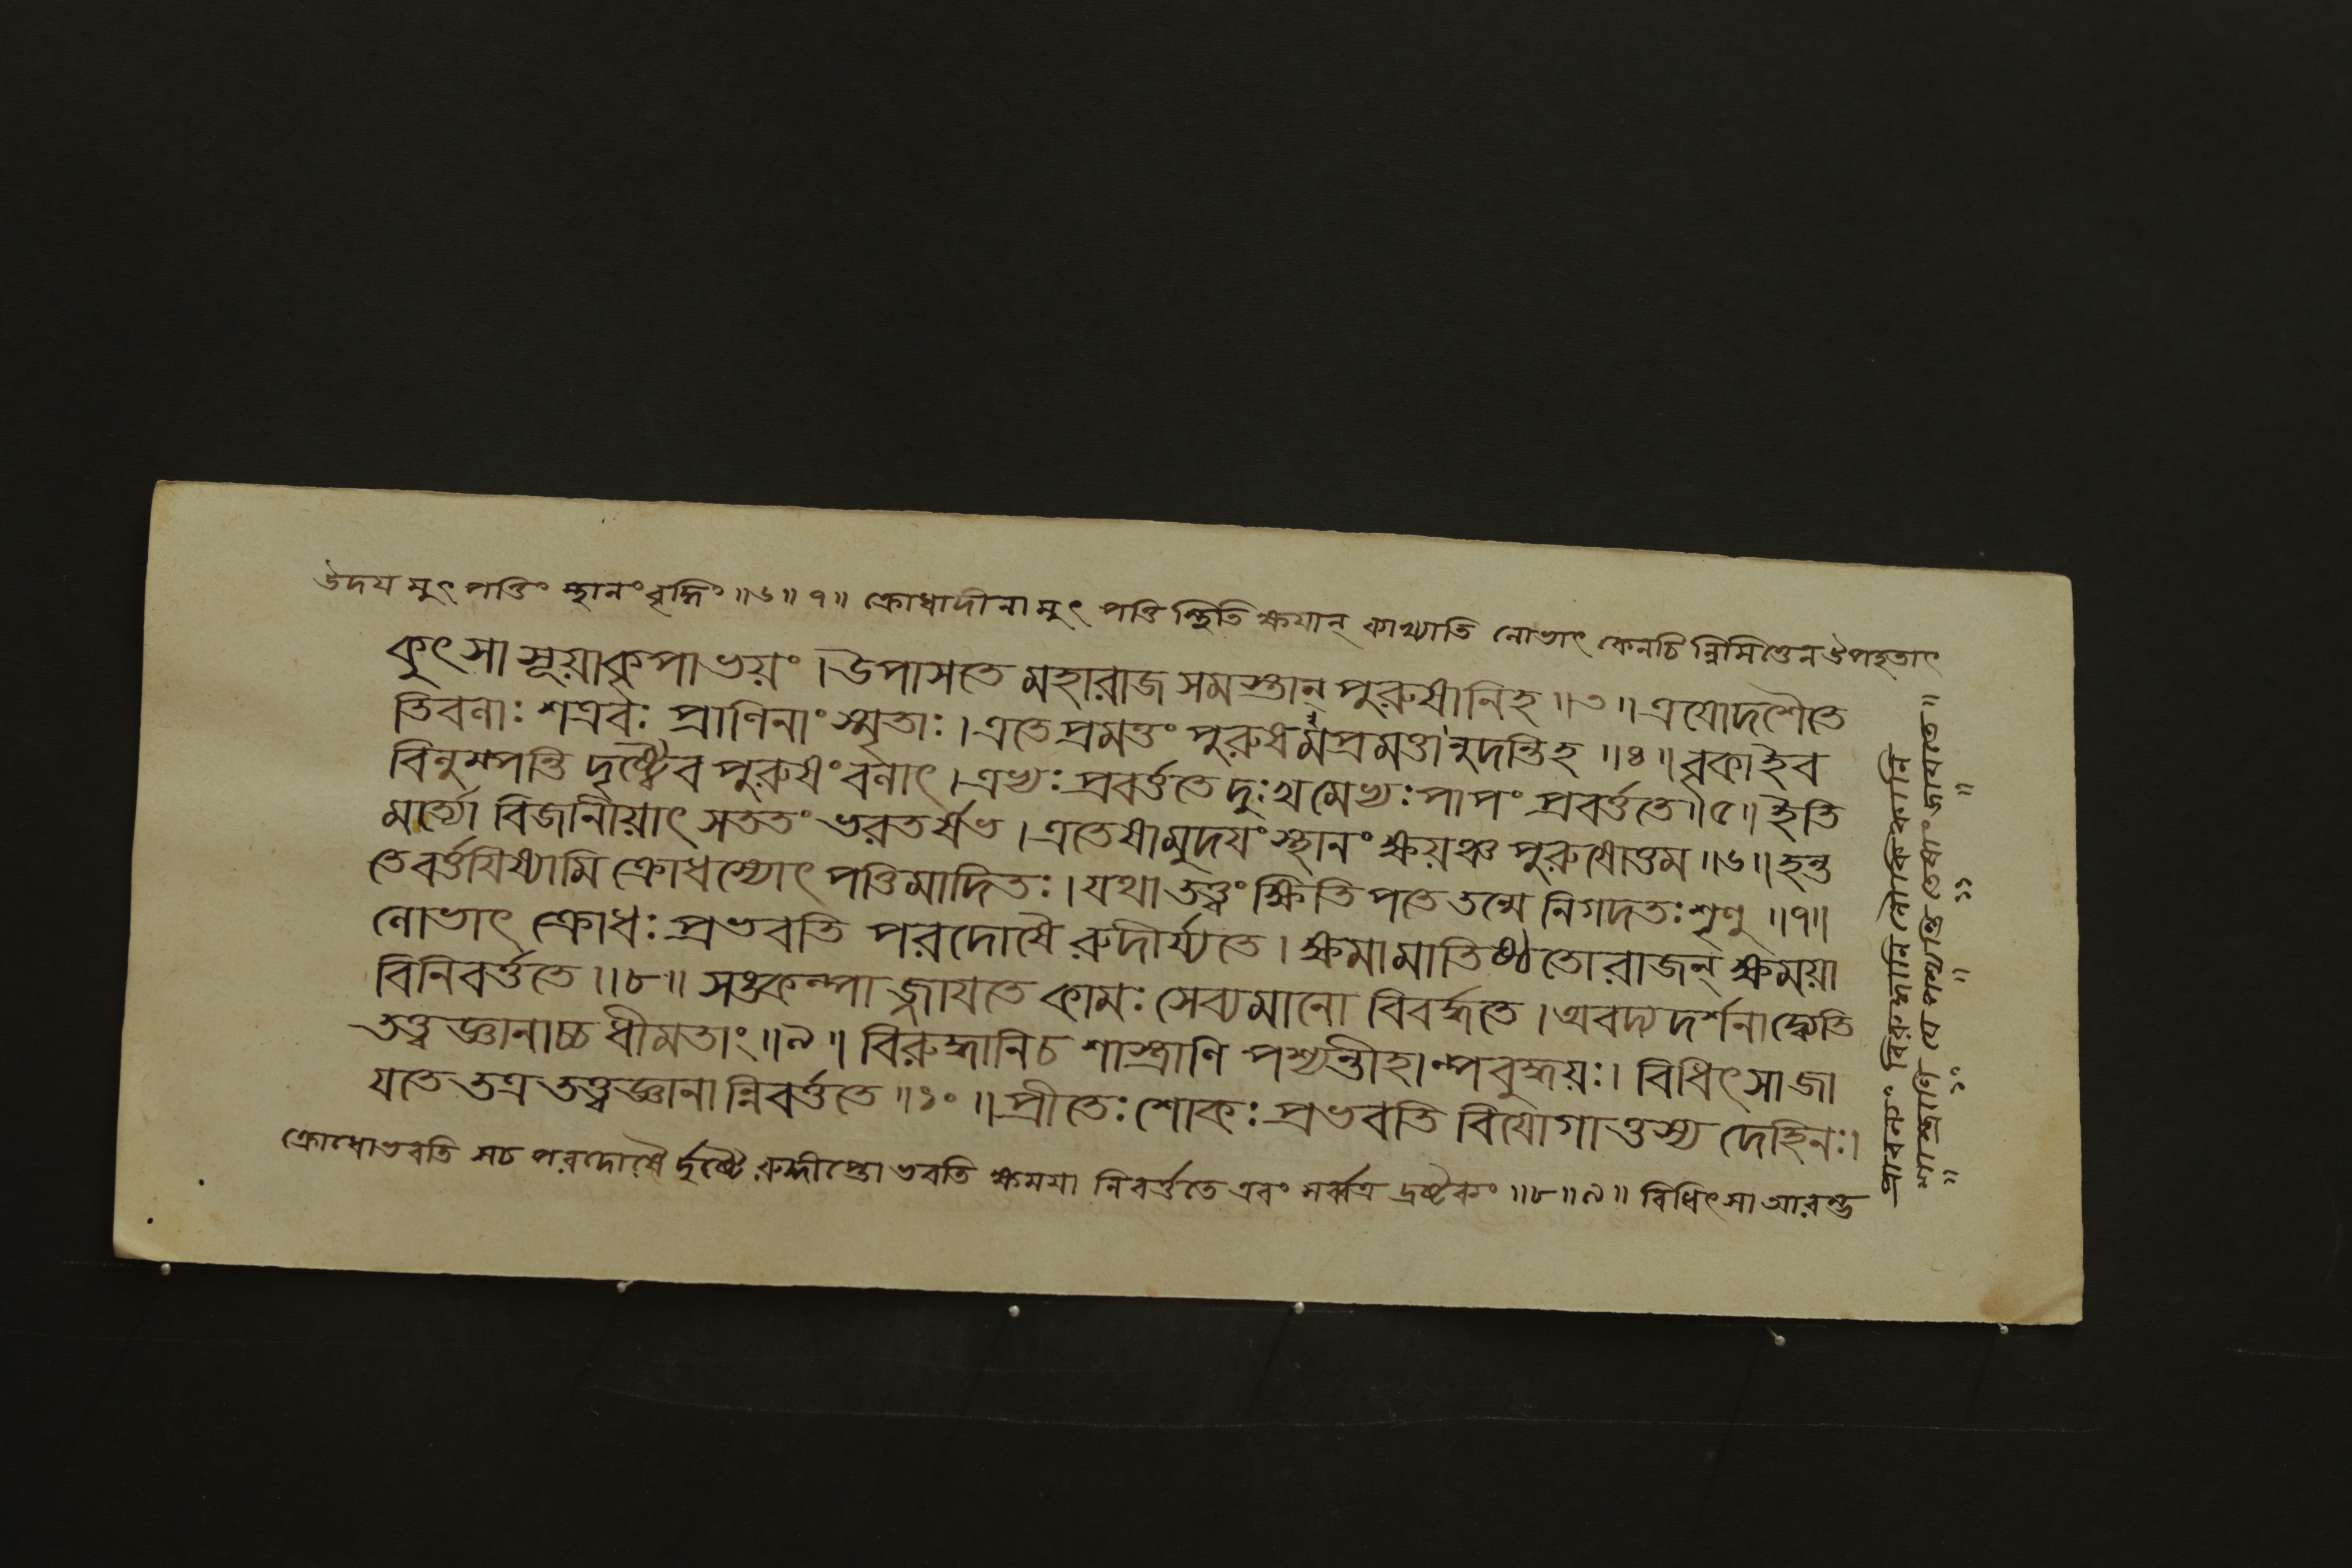 উদয মুৎপত্তিং স্থানং বৃদ্ধিং ॥৬॥৭॥ ক্রোধাদীনা মুৎপত্তি স্থিতি ক্ষযান্ কাখ্যাতি লোভাৎ কেনচি ন্নিমিত্তেন উপহতাৎ
কুৎসাসূয়াকৃপাভয়ং।উপাসতে মহারাজ সমস্তান্ পুরুষানিহ॥৩॥ত্রযোদশৈতে
তিবলাঃ শত্রবঃ প্রাণিনাং স্মৃতাঃ।এতে প্রমত্তং পুরুষমপ্রমত্তানুদন্তিহ॥৪॥বৃকাইব
বিলুম্পন্তি দৃষ্ট্বৈব পুরুষং বলাৎ।এভ্যঃ প্রবর্ত্ততে দুঃখমেভ্যঃপাপং প্রবর্ত্ততে॥৫॥ইতি
মর্ত্যো বিজানীয়াৎ সততং ভরতর্ষভ।এতেষামুদযং স্থানং ক্ষয়ঞ্চ পুরুষোত্তম॥৬॥হন্ত
তেবর্ত্তযিষ্যামি ক্রোধস্যোৎপত্তিমাদিতঃ।যথা তত্ত্বং ক্ষিতিপতে তন্মে নিগদতঃশৃণু॥৭॥
লোভাৎ ক্রোধঃ প্রভবতি পরদোষৈ রুদীর্য্যতে।ক্ষমামাতিষ্ঠতো রাজন্ ক্ষময়া
বিনিবর্ত্ততে॥৮॥সঙ্কল্পা জ্জাযতে কামঃ সেব্যমানো বিবর্দ্ধতে।অবদ্য দর্শনাদ্ব্যেতি
তত্ত্বজ্ঞানাচ্চ ধীমতাং॥৯॥বিরুদ্ধানিচ শাস্ত্রাণি পশ্যন্তীহাল্পবুদ্ধয়ঃ।বিধিৎসাজা
যতে তত্র তত্ত্বজ্ঞানা ন্নিবর্ত্ততে॥১০॥প্রীতেঃ শোকঃ প্রভবতি বিযোগাত্তস্য দেহিনঃ।
ক্রোধোভবতি সচ পরদোষৈ র্দৃষ্টৈ রুদ্দীপ্তো ভবতি ক্ষমযা নিবর্ত্ততে এবং সর্ব্বত্র দ্রষ্টব্যং॥৮॥৯॥বিধিৎসা আরম্ভ
বিরুদ্ধানি লৌকিকানি
শাস্ত্রাণি যে পশ্যন্তি তেষাং জাযতে॥
॥১০॥১১॥